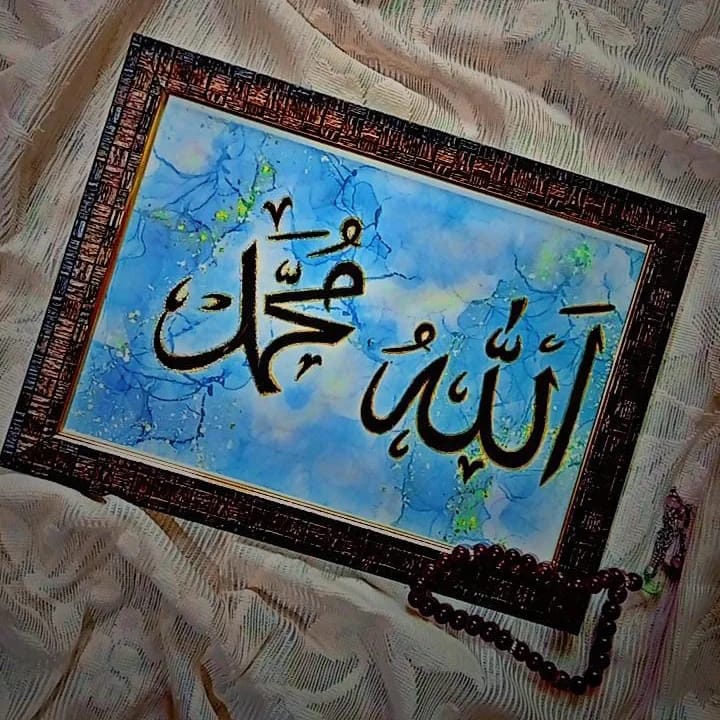 اَللّٰهُ
مُحَمَّد